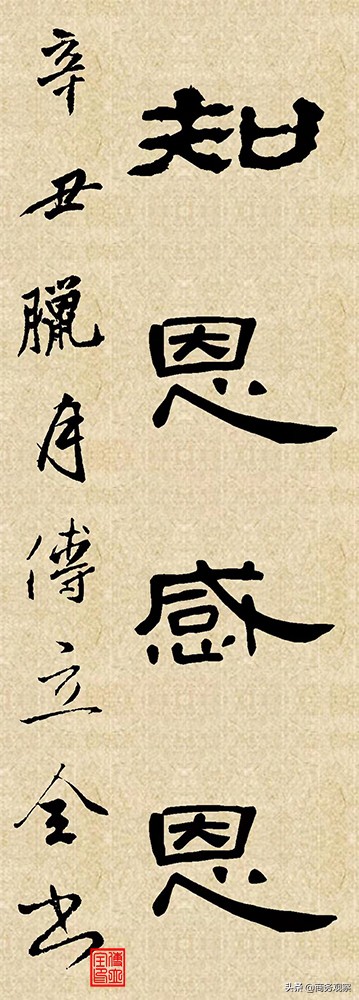 知恩感恩
辛丑臘月傅立全书
傅立全印
头条 @商务观察